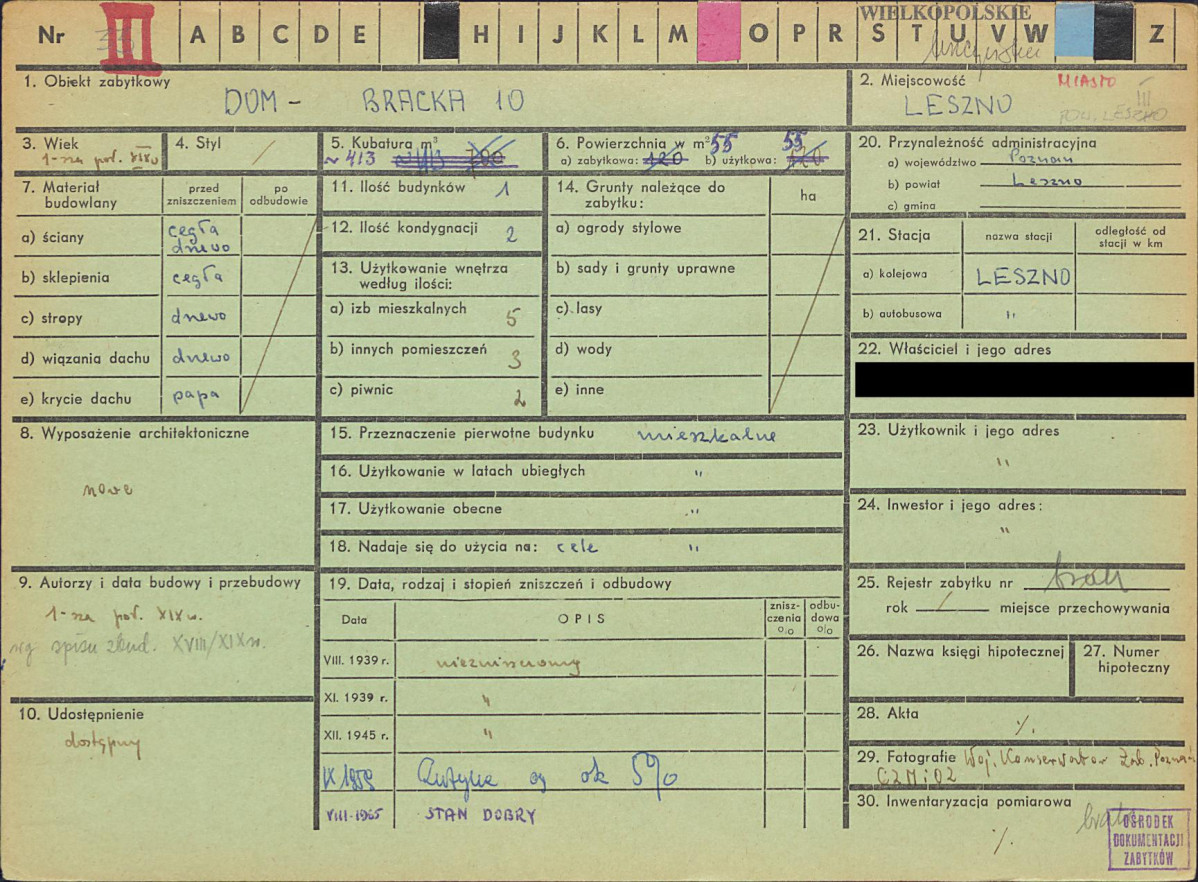 WIELKOPOLSKIE
Nr III A B C D E H I J K L M O P R S T U V W Z
1. Obiekt zabytkowy
DOM - BRACKA 10
2. Miejscowość MIASTO III
LESZNO
POW. LESZNO
3. Wiek
1-sza poł. XIX w
4. Styl /
5. Kubatura m³
~ 413 ~ 413 700
6. Powierzchnia w m² 55 55
a) zabytkowa: 120 b) użytkowa: 120
20. Przynależność administracyjna
a) województwo Poznań
b) powiat Leszno
c) gmina
7. Materiał budowlany
przed zniszczeniem
po odbudowie
a) ściany cegła drzewo
b) sklepienia cegła
c) stropy drzewo
d) wiązania dachu drzewo
e) krycie dachu papa
11. Ilość budynków 1
12. Ilość kondygnacji 2
13. Użytkowanie wnętrza według ilości:
a) izb mieszkalnych 5
b) innych pomieszczeń 3
c) piwnic 2
14. Grunty należące do zabytku:
ha
a) ogrody stylowe
b) sady i grunty uprawne
c) lasy
d) wody
e) inne
21. Stacja
nazwa stacji
odległość od stacji w km
a) kolejowa LESZNO
b) autobusowa "
22. Właściciel i jego adres
8. Wyposażenie architektoniczne
nowe
15. Przeznaczenie pierwotne budynku mieszkalne
16. Użytkowanie w latach ubiegłych "
17. Użytkowanie obecne "
18. Nadaje się do użycia na: cele "
23. Użytkownik i jego adres
"
24. Inwestor i jego adres:
"
9. Autorzy i data budowy i przebudowy
1-sza poł. XIX w.
wg spisu zbud. XVIII/XIX w.
19. Data, rodzaj i stopień zniszczeń i odbudowy
Data
OPIS
zniszczenia %
odbudowa %
VIII. 1939 r. niezniszczony
XI. 1939 r. "
XII. 1945 r. "
IX 1959 ok 5%
VIII-1965 STAN DOBRY
25. Rejestr zabytku nr brak
rok / miejsce przechowywania
26. Nazwa księgi hipotecznej
27. Numer hipoteczny
10. Udostępnienie
dostępny
28. Akta
./.
29. Fotografie Woj. Konserwator Zab. Poznań
CZMiOZ
30. Inwentaryzacja pomiarowa
./.
brak
OŚRODEK
DOKUMENTACJI
ZABYTKÓW